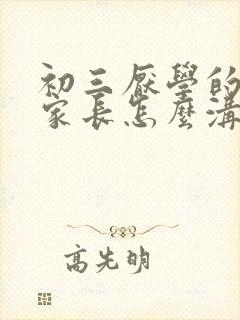 初三厭學的
家長怎麼溝
高先明